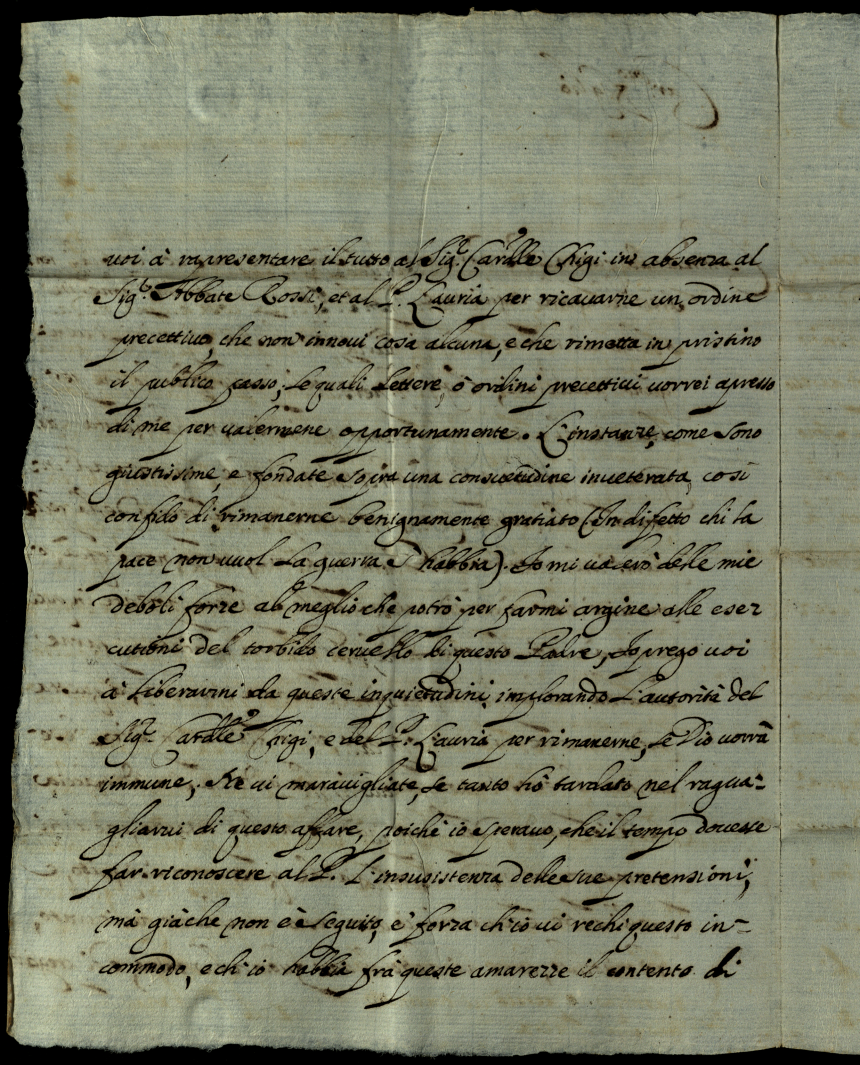 voi à rapresentare il tutto al Sig.r Card.lle Chigi in absenza al
Sig.r Abbate Rossi, et al P. Lauria per ricavarne un ordine
precettivo, che non innovi cosa alcuna, e che rimetta in pristino
il publico passo; Le quali Lettere, ò ordini precettivi vorrei apresso
di me per valermene opportunamente. L'instanze, come sono
giustissime, e fondate sopra una consuetudine inveterata, così
confido di rimanerne benignamente gratiato (In difetto chi la
pace non vuol La guerra s'habbia). Io mi valerò delle mie
deboli forze al meglio che potrò per farmi argine alle ese
cutioni del torbido cervello di questo Padre, Io prego voi
à Liberarmi da queste inquietudini, implorando L'autorità del
Sig.r Card.lle Chigi, e del P. Lauria per rimanerne, se Dio vorrà
immune; Ne vi maravigliate, se tanto hò tardato nel ragua-
gliarvi di questo affare, poiche io speravo, che il tempo dovesse
far riconoscere al P. L'insusistenza delle sue pretensioni,
mà giàche non è seguito, è forza ch'io vi rechi questo in-
commodo, e ch'io habbia frà queste amarezze il contento di